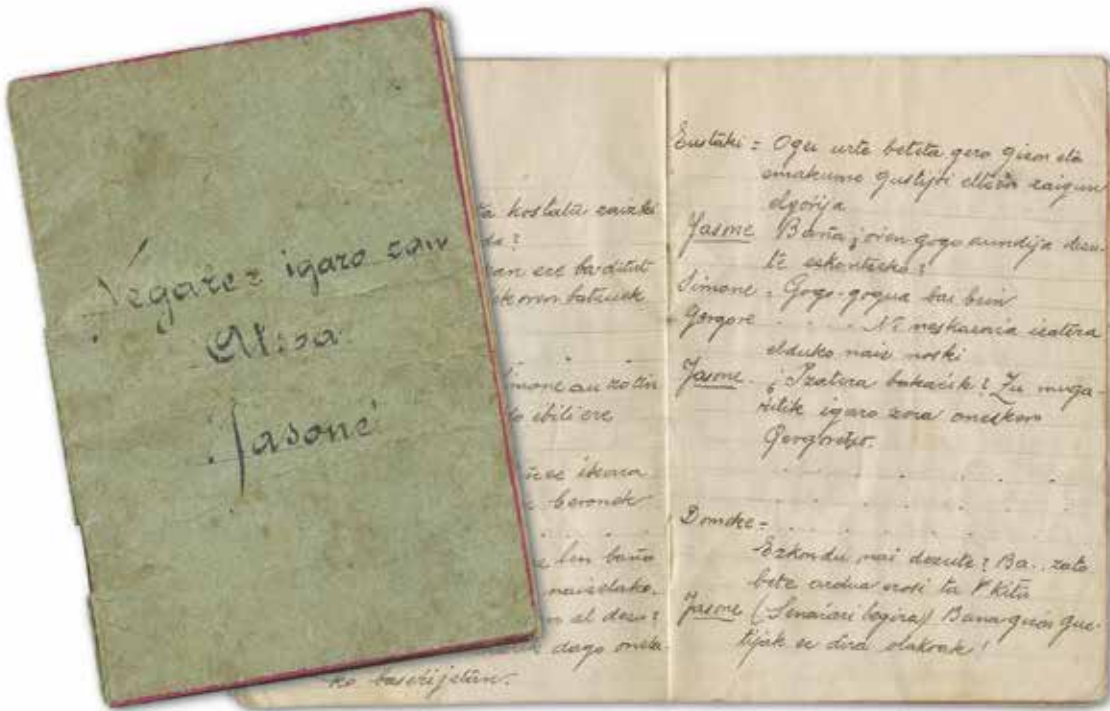 Negarrez igaro zan
Atsoa
Jasone
ta kostatu zaizki
da?
ean ere ba ditut
ekoren batzuek
Simone au zotin
do ibili ere
ikara
beronek
len baño
naizelako.
n al dezu?
dago oneta
ko baserijetan.
Eustaki = Ogei urte beteta gero gizon eta
emakume guztijoi elteten zaigun
elgorrija
Jasone Baña ¿oren gogo aundija dezu-
te eskontzeko?
Simone = Gogo-gogua bai beiñ
Gorgore . . . . . Ni neskazaria izatera
elduko naiz noski
Jasone. ¿Izatera bakarrik? Zu muga-
rritik igaro zera oneskero
Gorgoretxo.
Domeke =
Ezkondu nai dezute? Ba.. zato
bete ardua erosi ta Kitu
Jasone (Senarrari begira) Bana gizon guz-
tijak ez dira olakoak!